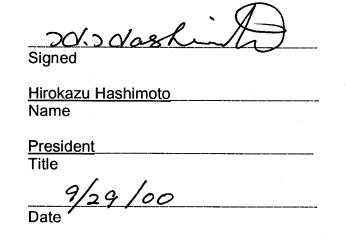 H. Hashimoto
Signed
Hirokazu Hashimoto
Name
President
Title
9/29/00
Date